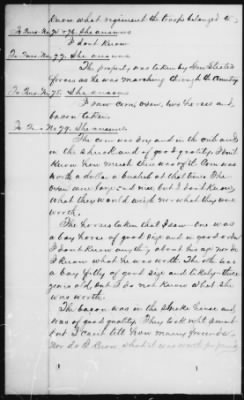 know what regiment the troops belonged to.
To Ques. No. 75 & 76. She answers
I don't know
To Ques. No. 77. She answers
The property was taken by Gen. 
forces as he was marching through the Country
To Ques. No. 78. She answers
I saw corn, oxen, two horses and
bacon taken
To Ques No. 79. She answers
The corn was dry and in the crib and
in the shuck and of good quality. I don't
know how much there was of it. Corn was
worth a dollar a bushel at that time. The
oxen were large and nice but I don't know
what they would weigh nor what they were
worth.
The horses taken that I saw one was a
bay horse of good size and a good one
I don't know anything about his age nor do
I know what he was worth. The other was
a bay filly of good size and likely three
years old, but I do not know what she
was worth.
The bacon was in the smoke house and
was of good quality. They took right smart
but I can't tell how many pounds
nor do I know what it was worth per pound